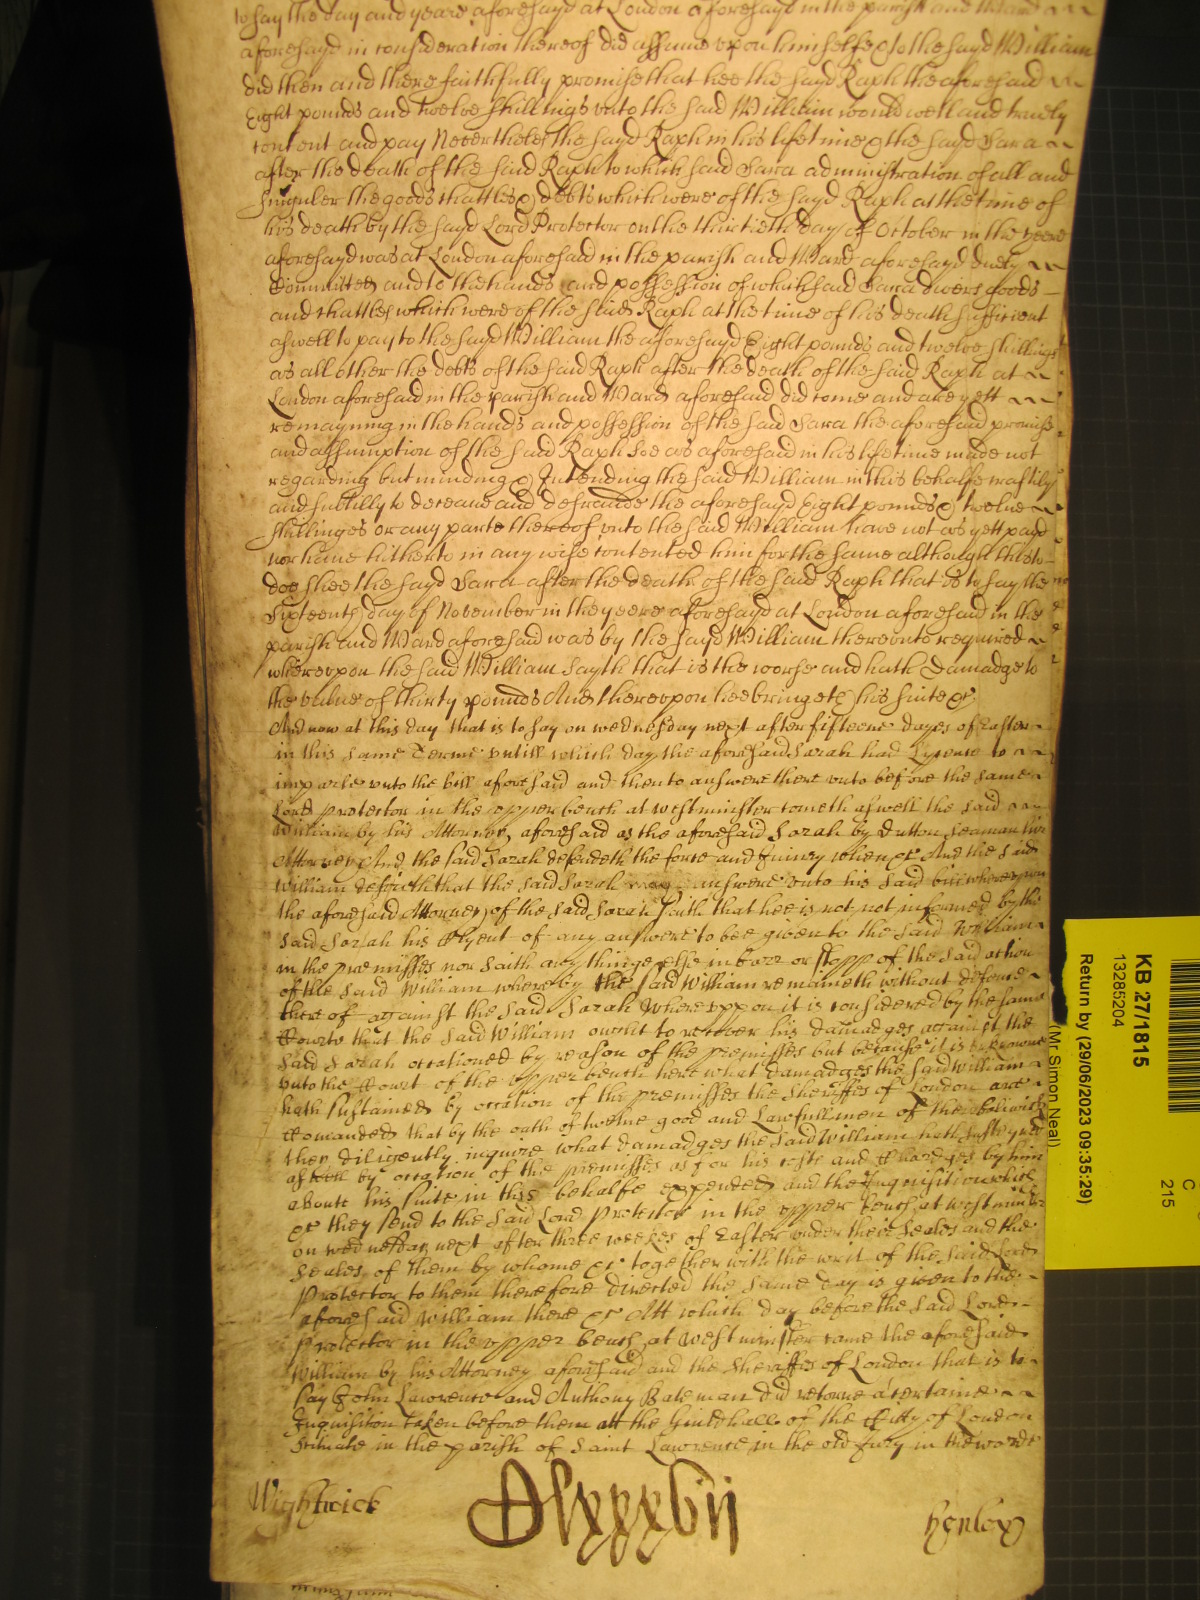 to say the day and yeare aforesayd at London aforesayd in the parish and Ward
aforesayd in consideration thereof did assume upon himselfe & to the sayd William
did then and there faithfully promise that hee the sayd Raph the aforesaid
Eight pounds and twelve shillings unto the said William would well and truely
content and pay Neverthelesse the sayd Raph in his life time & the sayd Sara
after the death of the said Raph to which said Sara administration of all and
singuler the goods chattles & debts which were of the sayd Raph at the time of
his death by the sayd Lord Protector on the thirtieth day of October in the yeere
aforesayd was at London aforesaid in the parish and Ward aforesayd duely
Committed and to the hands and possession of which said Sara divers goods
and chattles which were of the said Raph at the time of his death sufficient
aswell to pay to the sayd William the aforesayd Eight pounds and twelve shillings
as all other the debts of the said Raph after the death of the said Raph at
London aforesaid in the parish and Ward aforesaid did come and are yett
remayning in the hands and possession of the said Sara the aforesaid promise
and assumption of the said Raph soe as aforesaid in his life time made not
regarding but minding & Intending the said William in this behalfe craftily
and subtilly to deceave and defraude the aforesayd Eight pounds & twelve
shillinges or any parte thereof unto the said William have not as yett payd
nor have hitherto in any wise contented him for the same although this to
doe shee the sayd Sara after the death of the said Raph that is to say the
Sixteenth day of November in the yeere aforesayd at London aforesaid in the
parish and Ward aforesaid was by the sayd William thereunto required
whereupon the said William sayth that is the worse and hath Damadge to
the value of thirty pounds And thereupon hee bringeth his suite &c
And now at this day that is to say on wednesday next after fifteene dayes of Easter
in this same Terme untill which day the aforesaid Sarah had Lycence to
imparle unto the bill aforesaid and then to answere there unto before the same
Lord protector in the upper bench at westminster cometh aswell the said
William by his Attorney aforesaid as the aforesaid Sarah by Dutton Seaman her
Attorney And the said Sarah defendeth the force and Iniury when &c And the said
William desireth that the said Sarah may answere unto his said bill whereupon
the aforesaid Attorney of the said Sarah saith that hee is not not informed by the
said Sarah his Clyent of any answere to bee given to the said William
in the premisses nor saith any thinge else in barr or stopp of the said action
of the said William whereby the said William remaineth without defence
there of against the said Sarah Whereuppon it is considered by the same
Courte that the said William ought to recover his damadges against the
said Sarah occationed by reason of the premisses but because it is unknowne
unto the Court of the upper bench here what damadges the said William
hath sustained by occation of the premisses the Sheriffes of London are
Comanded that by the oath of twelve good and Lawfull men of their bailiwick
they diligently inquire what damadges the said William hath sustayned
aswell by occation of the premisses as for his costs and Chardges by him
aboute his suite in this behalfe expended and the Inquisition which
&c they send to the said Lord Protector in the upper bench at westminster
on wednesday next after three weekes of Easter under their Seales and the
Seales of them by whome &c together with the writ of the said Lord
Protector to them therefore directed the same day is given to the
aforesaid William there &c Att which day before the said Lord
Protector in the upper bench at westminster came the aforesaid
William by his Attorney aforesaid and the Sheriffes of London that is to
say John Lawrence and Anthony Bateman did returne a certaine
Inquisition taken before them att the Guildhall of the Citty of London
scituate in the parish of Saint Lawrence in the old Jury in the warde
Wightwick
Dlxxxvii
henley
KB 27/1815
13285204
Return by (29/06/2023 09:35:29)
(Mr Simon Neal)
C
215